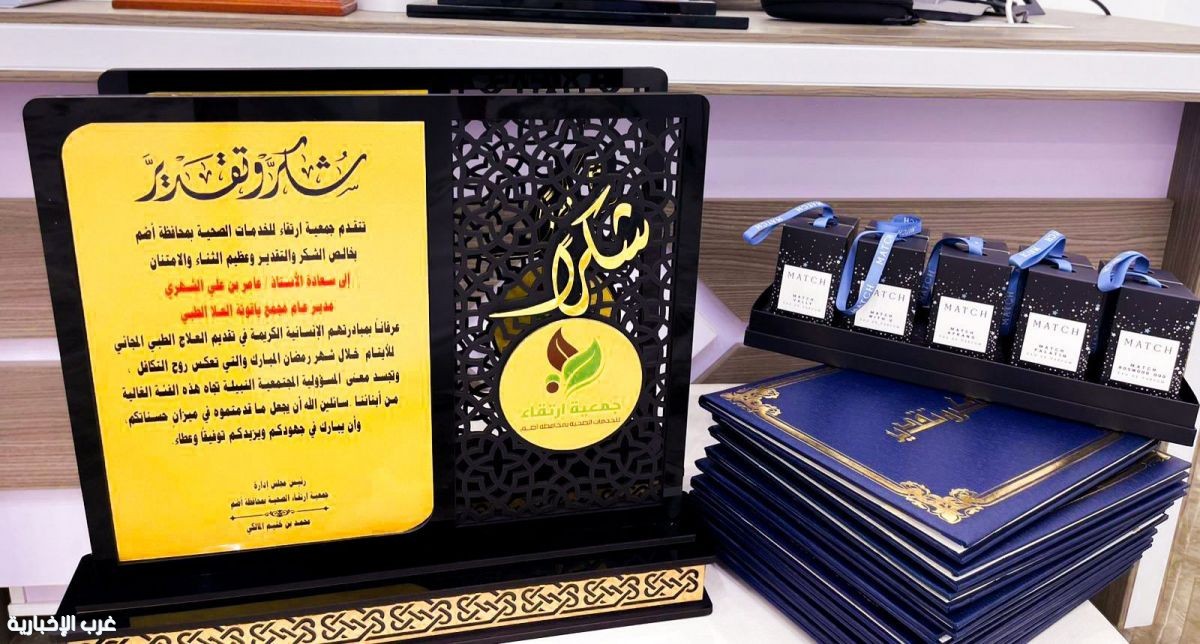 شكر وتقدير
تتقدم جمعية ارتقاء للخدمات الصحية بمحافظة أضم
بخالص الشكر والتقدير وعظيم الثناء والامتنان
إلى سعادة الأستاذ / عامر بن علي الشهري
مدير عام مجمع ياقوتة العلا الطبي
عرفاناً بمبادرتهم الإنسانية الكريمة في تقديم العلاج الطبي المجاني
للأيتام خلال شهر رمضان المبارك والتي تعكس روح التكافل ،
وتجسد معنى المسؤولية المجتمعية النبيلة تجاه هذه الفئة الغالية
من أبنائنا .سائلين الله أن يجعل ما قدمتموه في ميزان حسناتكم،
وأن يبارك في جهودكم ويزيدكم توفيقاً وعطاء.
رئيس مجلس ادارة
جمعية ارتقاء الصحية بمحافظة أضم
محمد بن غنيم المالكي
شكراً
جمعية ارتقاء
للخدمات الصحية بمحافظة أضم
MATCH
MATCH
MATCH
MATCH
MATCH
MATCH
MATCH
MATCH
MATCH
EAU DE PARFUM
شكر وتقدير
غرب الإخبارية